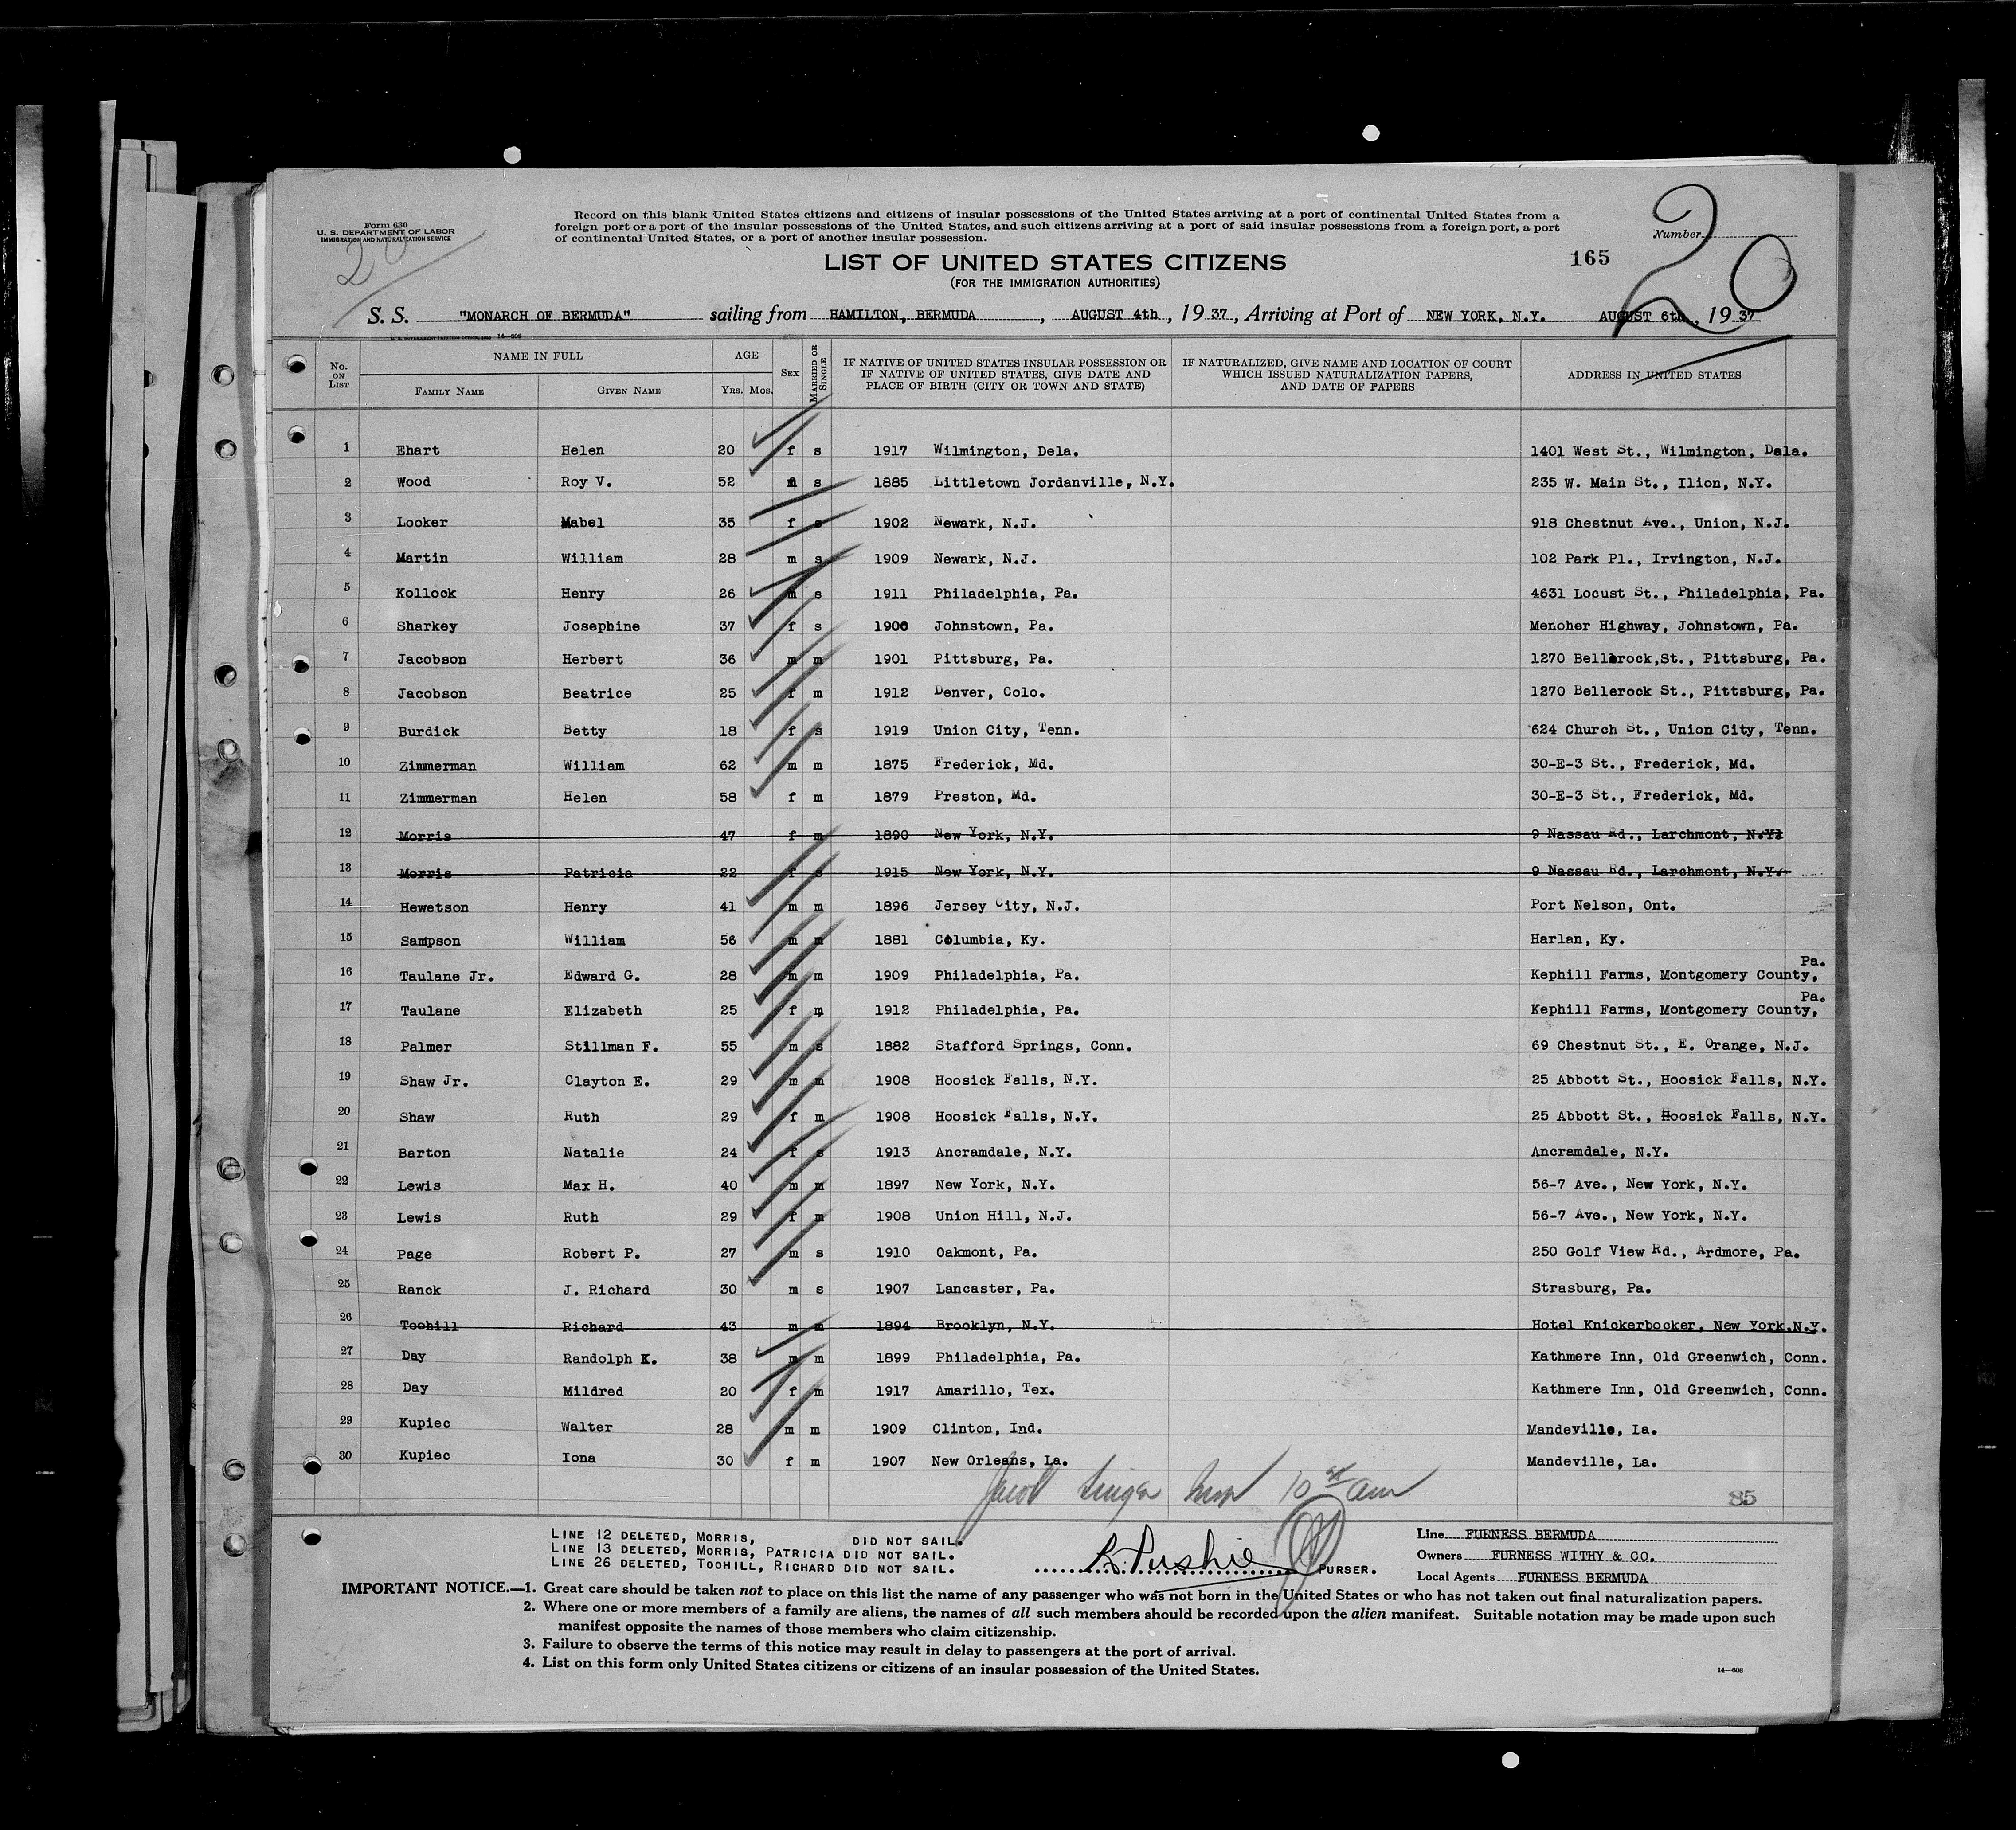 Form 630
U. S. DEPARTMENT OF LABOR
IMMIGRATION AND NATURALIZATION SERVICE
20
Record on this blank United States citizens and citizens of insular possessions of the United States arriving at a port of continental United States from a
foreign port or a port of the insular possessions of the United States, and such citizens arriving at a port of said insular possessions from a foreign port, a port
of continental United States, or a port of another insular possession.
Number
20
LIST OF UNITED STATES CITIZENS
165
(FOR THE IMMIGRATION AUTHORITIES)
S. S. "MONARCH OF BERMUDA" sailing from HAMILTON, BERMUDA, AUGUST 4th, 1937, Arriving at Port of NEW YORK, N.Y. AUGUST 6th, 1937
14—608
No. ON LIST NAME IN FULL FAMILY NAME GIVEN NAME AGE Yrs. Mos. SEX MARRIED OR SINGLE IF NATIVE OF UNITED STATES INSULAR POSSESSION OR IF NATIVE OF UNITED STATES, GIVE DATE AND PLACE OF BIRTH (CITY OR TOWN AND STATE) IF NATURALIZED, GIVE NAME AND LOCATION OF COURT WHICH ISSUED NATURALIZATION PAPERS, AND DATE OF PAPERS ADDRESS IN UNITED STATES
1 Ehart Helen 20 f s 1917 Wilmington, Dela. 1401 West St., Wilmington, Dela.
2 Wood Roy V. 52 m s 1885 Littletown Jordanville, N.Y. 235 W. Main St., Ilion, N.Y.
3 Looker Mabel 35 f s 1902 Newark, N.J. 918 Chestnut Ave., Union, N.J.
4 Martin William 28 m s 1909 Newark, N.J. 102 Park Pl., Irvington, N.J.
5 Kollock Henry 26 m s 1911 Philadelphia, Pa. 4631 Locust St., Philadelphia, Pa.
6 Sharkey Josephine 37 f s 1900 Johnstown, Pa. Menoher Highway, Johnstown, Pa.
7 Jacobson Herbert 36 m m 1901 Pittsburg, Pa. 1270 Bellerock,St., Pittsburg, Pa.
8 Jacobson Beatrice 25 f m 1912 Denver, Colo. 1270 Bellerock St., Pittsburg, Pa.
9 Burdick Betty 18 f s 1919 Union City, Tenn. 624 Church St., Union City, Tenn.
10 Zimmerman William 62 m m 1875 Frederick, Md. 30-E-3 St., Frederick, Md.
11 Zimmerman Helen 58 f m 1879 Preston, Md. 30-E-3 St., Frederick, Md.
12 Morris 47 f m 1890 New York, N.Y. 9 Nassau Rd., Larchmont, N.Y.
13 Morris Patricia 22 f s 1915 New York, N.Y. 9 Nassau Rd., Larchmont, N.Y.
14 Hewetson Henry 41 m m 1896 Jersey City, N.J. Port Nelson, Ont.
15 Sampson William 56 m m 1881 Columbia, Ky. Harlan, Ky.
16 Taulane Jr. Edward G. 28 m m 1909 Philadelphia, Pa. Kephill Farms, Montgomery County, Pa.
17 Taulane Elizabeth 25 f m 1912 Philadelphia, Pa. Kephill Farms, Montgomery County, Pa.
18 Palmer Stillman F. 55 m s 1882 Stafford Springs, Conn. 69 Chestnut St., E. Orange, N.J.
19 Shaw Jr. Clayton E. 29 m m 1908 Hoosick Falls, N.Y. 25 Abbott St., Hoosick Falls, N.Y.
20 Shaw Ruth 29 f m 1908 Hoosick Falls, N.Y. 25 Abbott St., Hoosick Falls, N.Y.
21 Barton Natalie 24 f s 1913 Ancramdale, N.Y. Ancramdale, N.Y.
22 Lewis Max H. 40 m m 1897 New York, N.Y. 56-7 Ave., New York, N.Y.
23 Lewis Ruth 29 f m 1908 Union Hill, N.J. 56-7 Ave., New York, N.Y.
24 Page Robert P. 27 m s 1910 Oakmont, Pa. 250 Golf View Rd., Ardmore, Pa.
25 Ranck J. Richard 30 m s 1907 Lancaster, Pa. Strasburg, Pa.
26 Toohill Richard 43 m m 1894 Brooklyn, N.Y. Hotel Knickerbocker, New York,N.Y.
27 Day Randolph K. 38 m m 1899 Philadelphia, Pa. Kathmere Inn, Old Greenwich, Conn.
28 Day Mildred 20 f m 1917 Amarillo, Tex. Kathmere Inn, Old Greenwich, Conn.
29 Kupiec Walter 28 m m 1909 Clinton, Ind. Mandeville, La.
30 Kupiec Iona 30 f m 1907 New Orleans, La. Mandeville, La.
Jacob Singer Insp 10 am
85
LINE 12 DELETED, MORRIS, DID NOT SAIL.
LINE 13 DELETED, MORRIS, PATRICIA DID NOT SAIL.
LINE 26 DELETED, TOOHILL, RICHARD DID NOT SAIL.
R. Pushie PURSER.
Line FURNESS BERMUDA
Owners FURNESS WITHY & CO.
Local Agents FURNESS BERMUDA
IMPORTANT NOTICE.—1. Great care should be taken not to place on this list the name of any passenger who was not born in the United States or who has not taken out final naturalization papers.
2. Where one or more members of a family are aliens, the names of all such members should be recorded upon the alien manifest. Suitable notation may be made upon such
manifest opposite the names of those members who claim citizenship.
3. Failure to observe the terms of this notice may result in delay to passengers at the port of arrival.
4. List on this form only United States citizens or citizens of an insular possession of the United States.
14—608